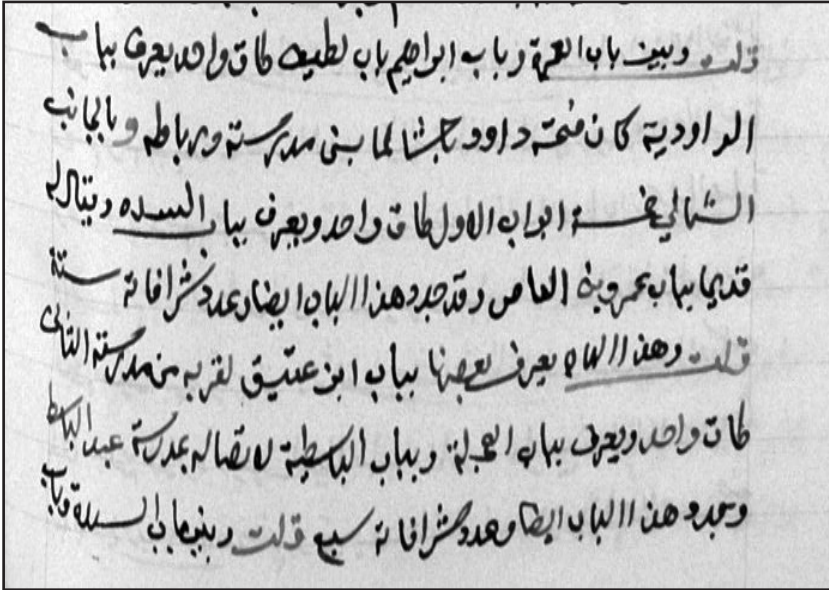 قلت وبين باب العمرة وباب ابراهيم باب لطيف طاق واحد يعرف بباب
الداودية كان فتحه داود باشا لما بنى مدرسته ورباطه وبالجانب
الشمالي خمسة ابواب الاول طاق واحد ويعرف بباب السده ويقال له
قديما بباب عمرو بن العاص وقد جدد هذا الباب ايضا وعدد شرافاته ستة
قلت وهذا الباب يعرف بباب ابن عتيق لقربه من مدرسته الثاني
طاق واحد ويعرف بباب العجلة وبباب الباسطية لاتصاله بمدرسة عبد الباسط
وجدد هذا الباب ايضا وعدد شرافاته سبع قلت وبين باب السدة وباب